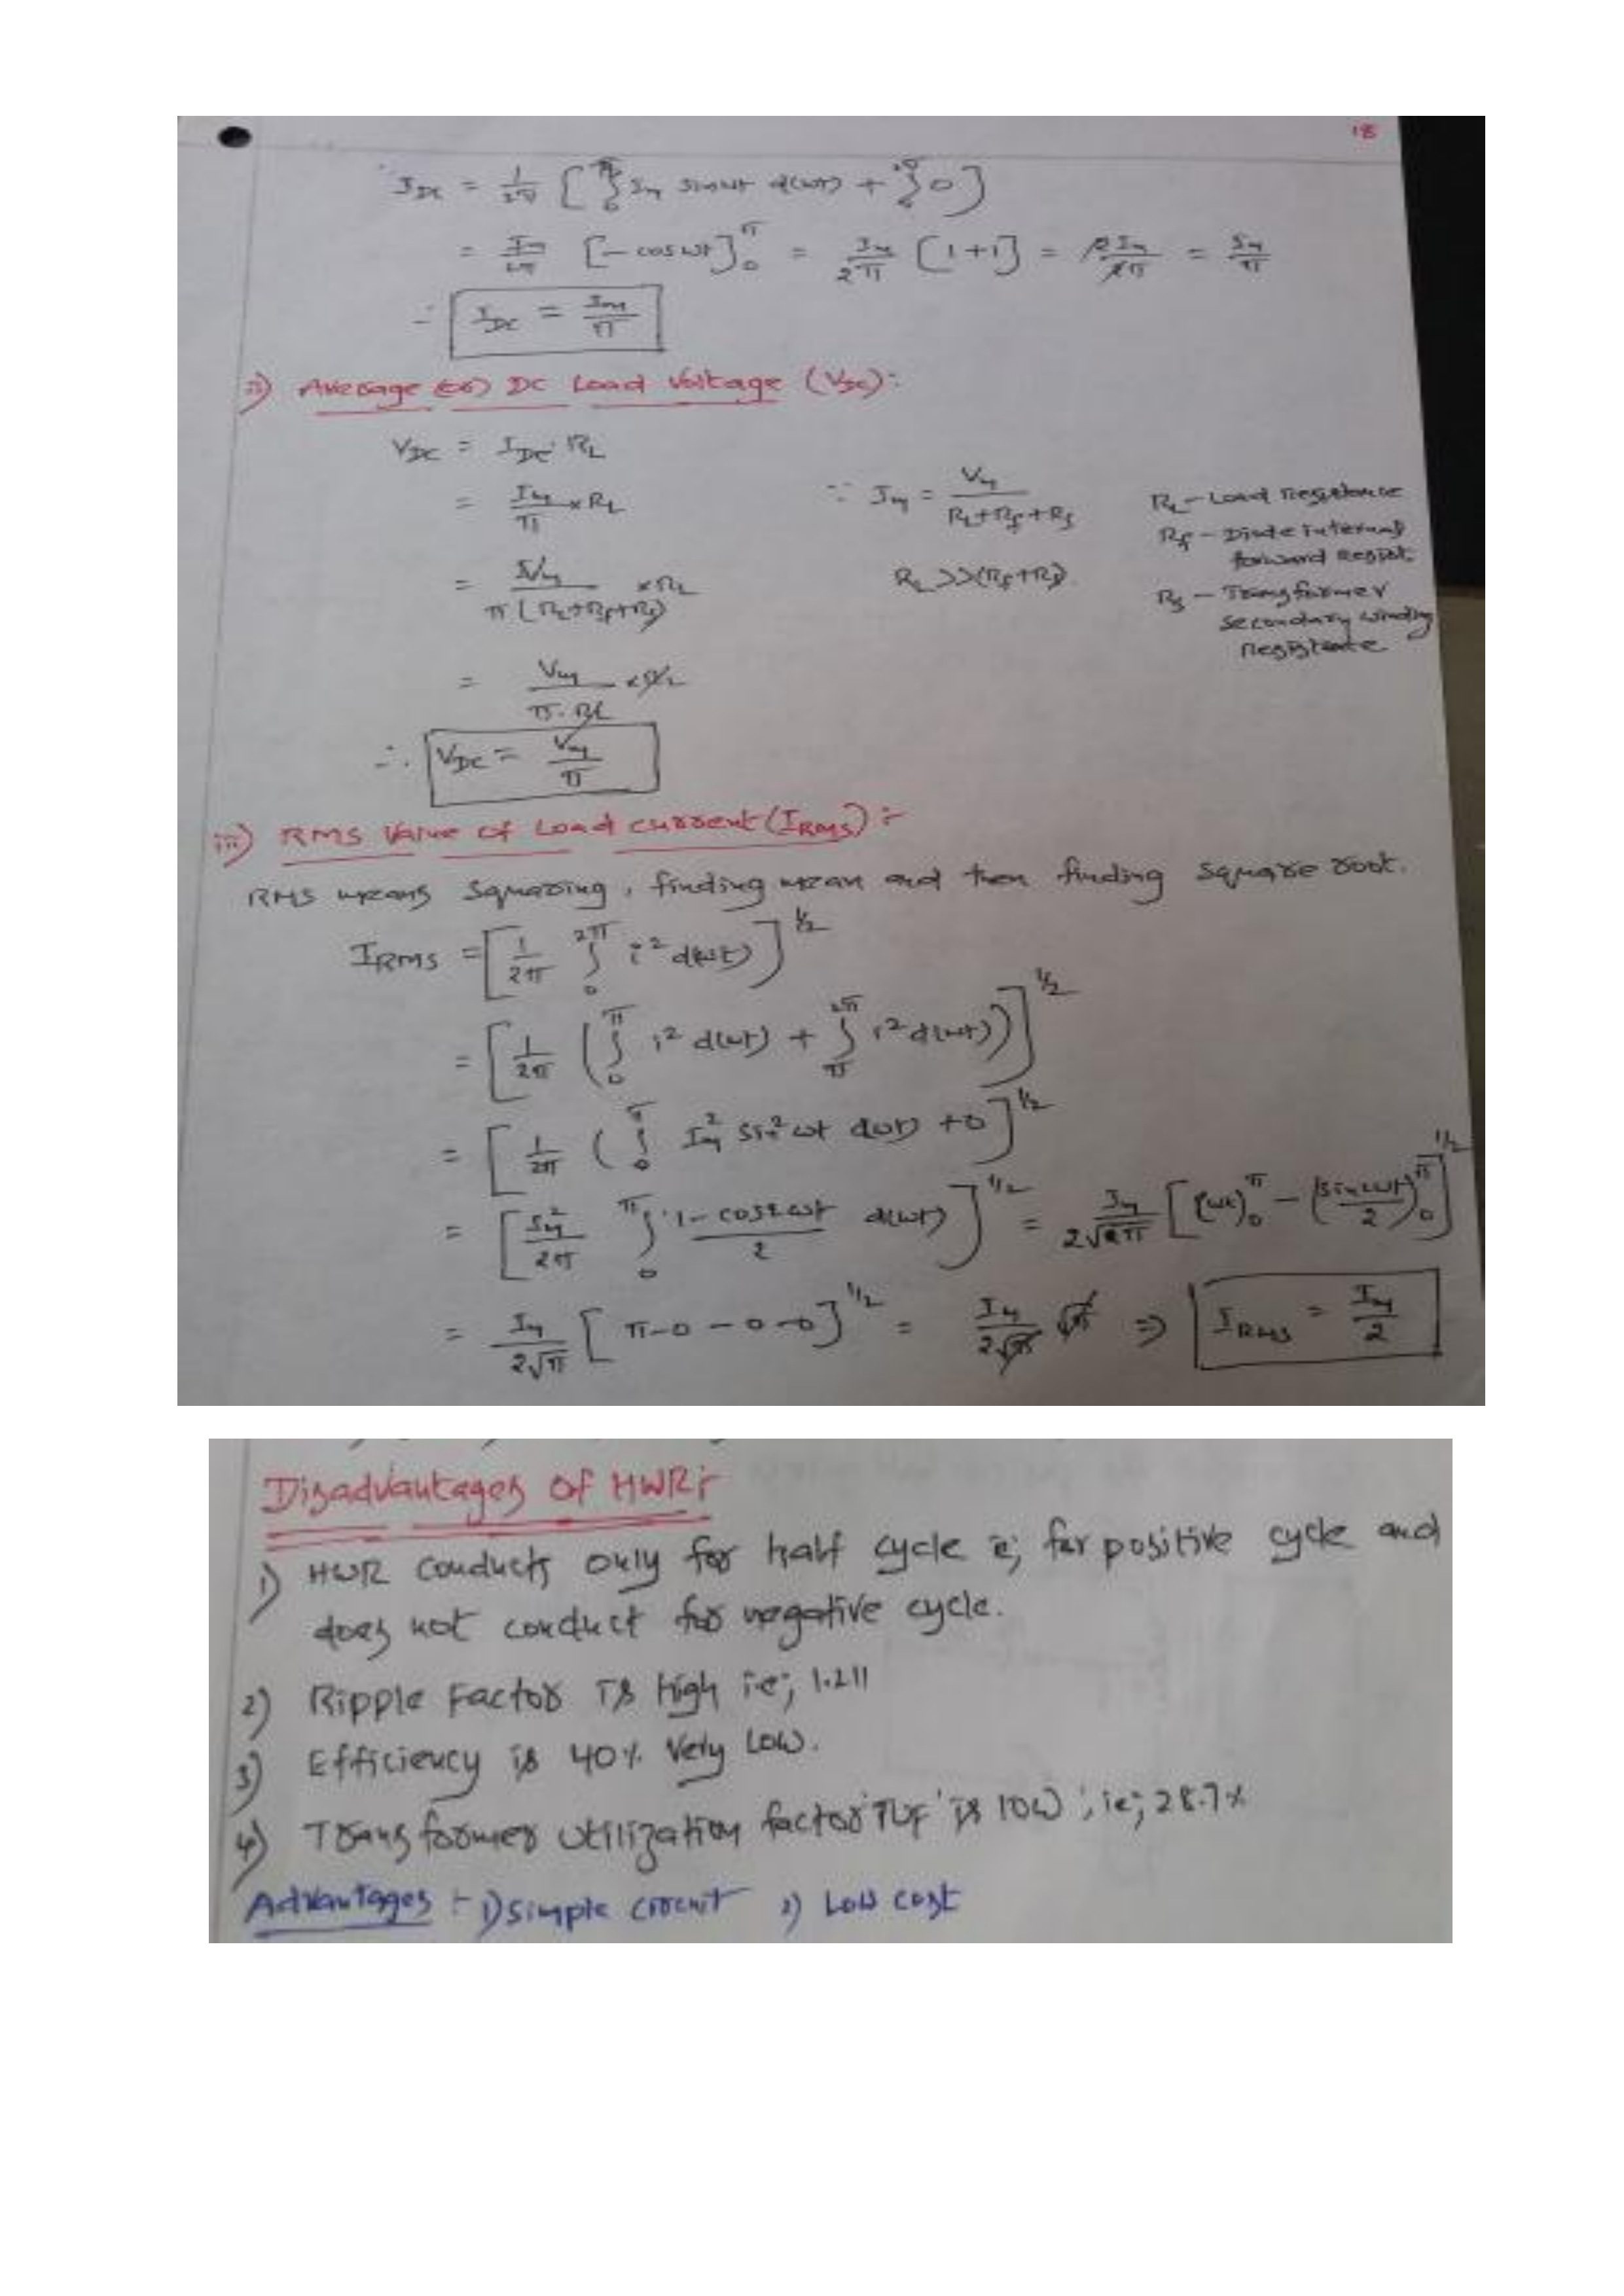 18
I_DC = 1/2π [ ∫_0^π I_m sinωt d(ωt) + ∫ 0 ]
= I_m/2π [-cosωt]_0^π = I_m/2π [1+1] = 2I_m/2π = I_m/π
∴ I_DC = I_m/π
ii) Average (or) DC Load Voltage (V_DC):-
V_DC = I_DC · R_L
= I_m/π × R_L
∵ I_m = V_m/(R_L+R_f+R_s)
R_L >> (R_f+R_s)
R_L - Load Resistance
R_f - Diode internal
forward Resist.
R_s - Transformer
secondary winding
Resistance
= V_m/(π(R_L+R_f+R_s)) × R_L
= V_m/(π·R_L) × R_L
∴ V_DC = V_m/π
iii) RMS Value of Load current (I_RMS) :-
RMS means squaring, finding mean and then finding square root.
I_RMS = [ 1/2π ∫_0^2π i² d(ωt) ]^1/2
= [ 1/2π ( ∫_0^π i² d(ωt) + ∫_π^2π i² d(ωt) ) ]^1/2
= [ 1/2π ( ∫_0^π I_m² sin²ωt d(ωt) + 0 ]^1/2
= [ I_m²/2π ∫_0^π (1-cos2ωt)/2 d(ωt) ]^1/2 = I_m/2√π [ (ωt)_0^π - (sin2ωt/2)_0^π ]^1/2
= I_m/2√π [ π-0-0-0 ]^1/2 = I_m/2√π √π ⇒ I_RMS = I_m/2
Disadvantages of HWR:-
1) HWR conducts only for half cycle ie; for positive cycle and
does not conduct for negative cycle.
2) Ripple Factor is high i.e; 1.211
3) Efficiency is 40% Very Low.
4) Transformer utilization factor 'TUF' is low, ie; 28.7%
Advantages :- 1) Simple circuit 2) Low cost